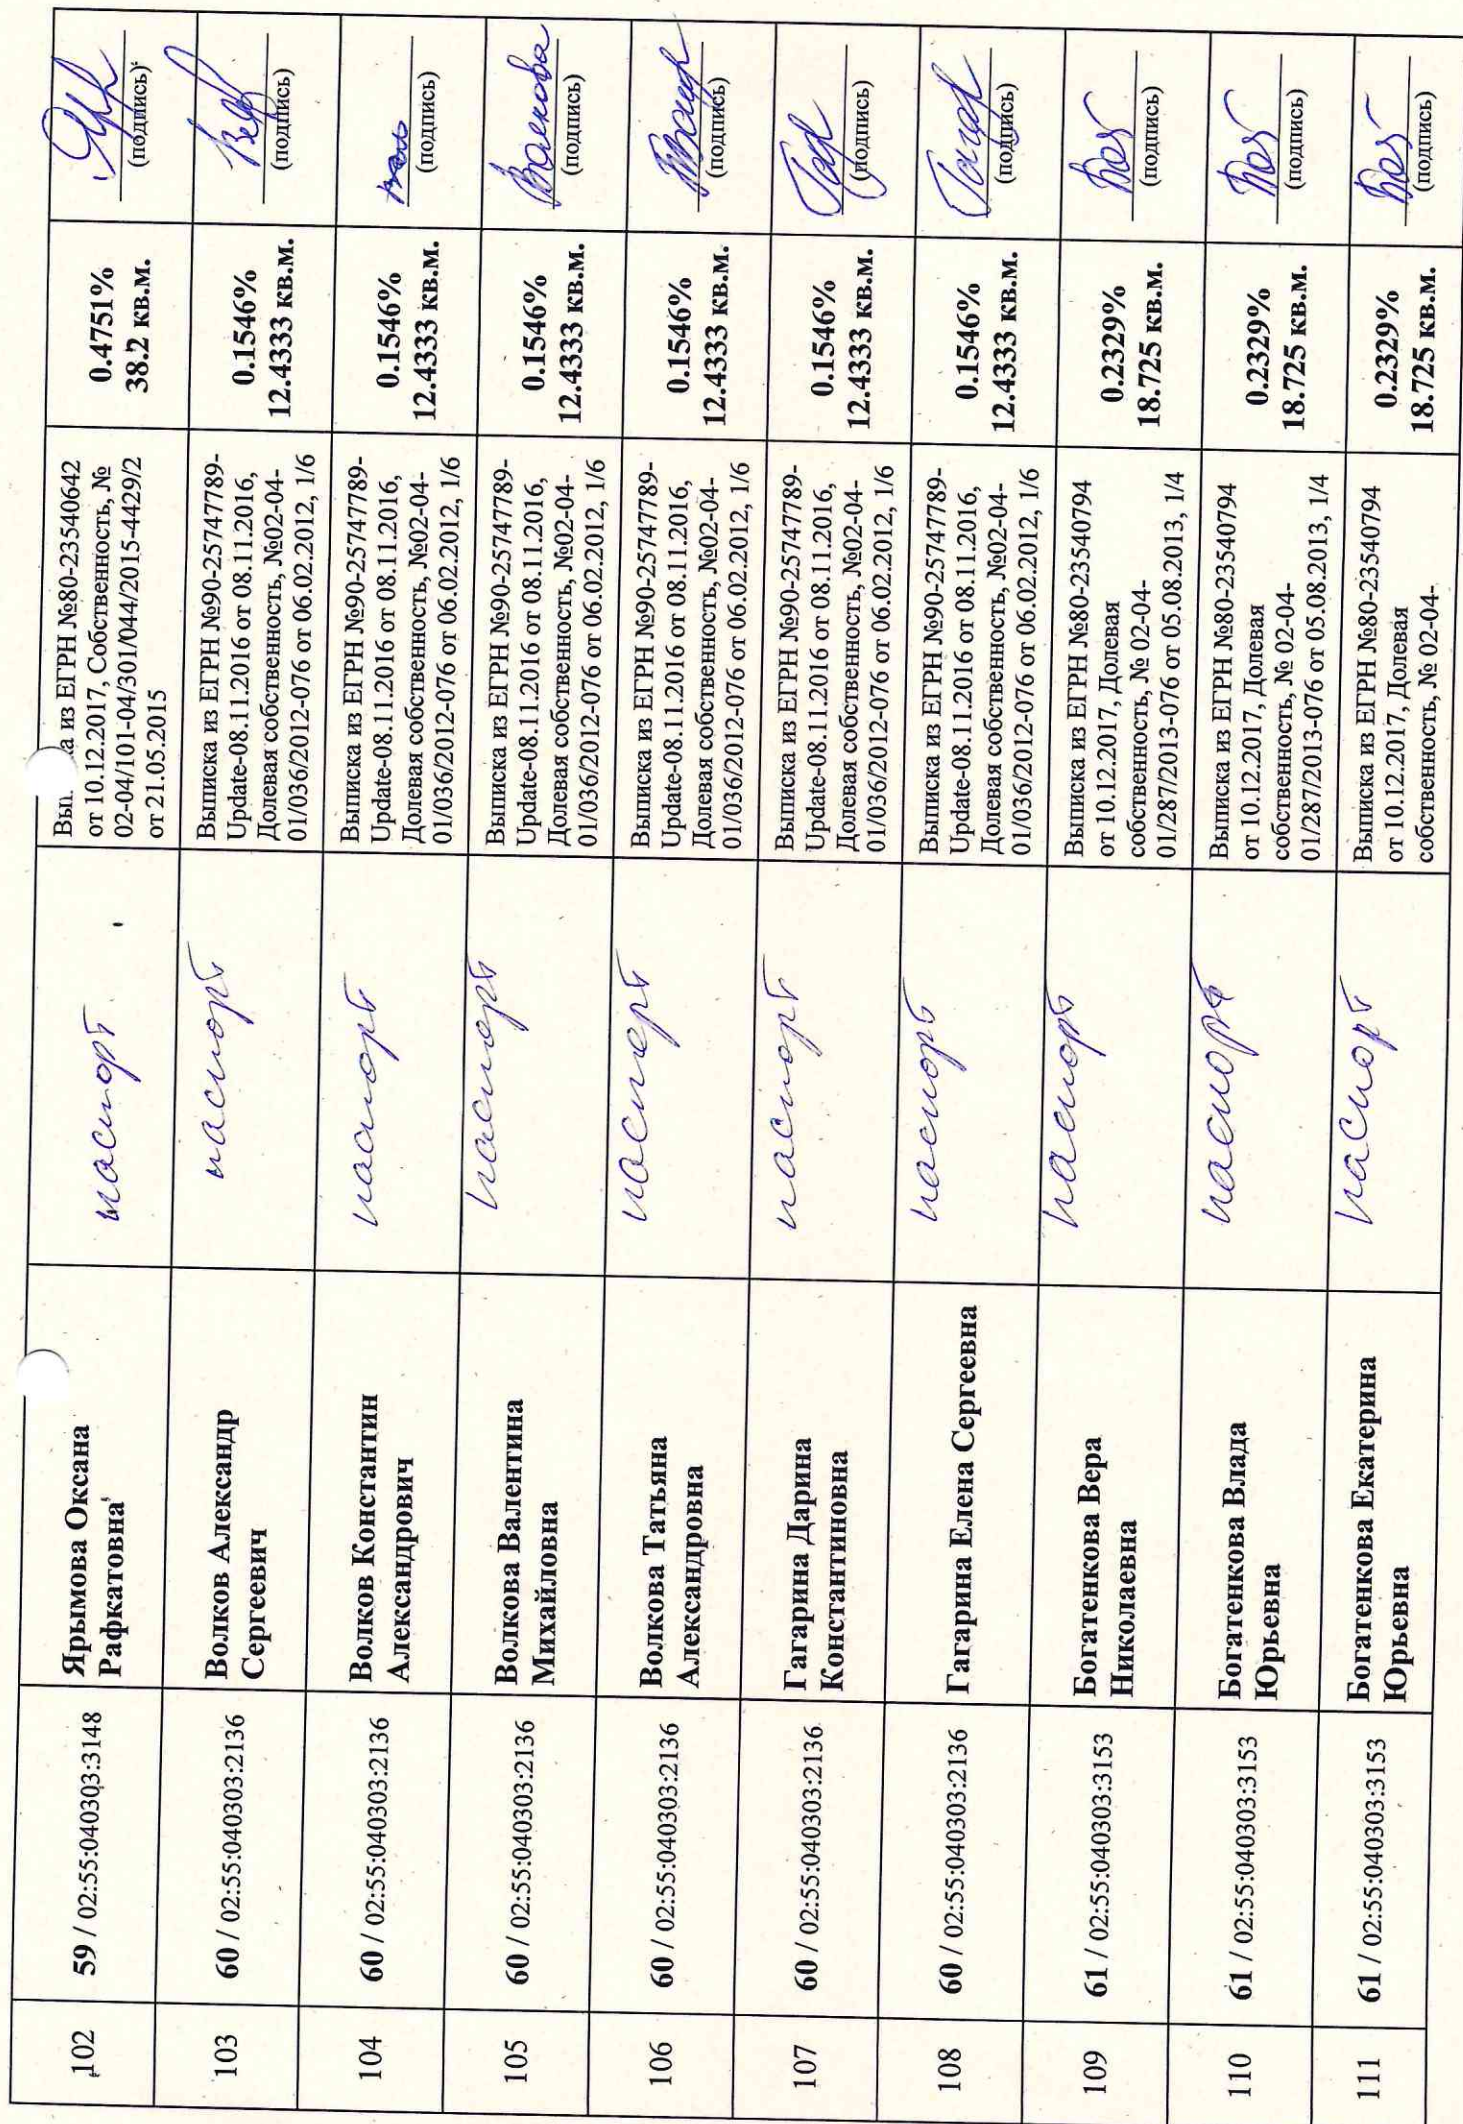 102
59 / 02:55:040303:3148
Ярымова Оксана
Рафкатовна
паспорт
из ЕГРН №80-23540642
от 10.12.2017, Собственность, №
02-04/101-04/301/044/2015-4429/2
от 21.05.2015
0.4751%
38.2 кв.м.
(подпись)
103
60 / 02:55:040303:2136
Волков Александр
Сергеевич
паспорт
Выписка из ЕГРН №90-25747789-
Update-08.11.2016 от 08.11.2016,
Долевая собственность, №02-04-
01/036/2012-076 от 06.02.2012, 1/6
0.1546%
12.4333 кв.м.
(подпись)
104
60 / 02:55:040303:2136
Волков Константин
Александрович
паспорт
Выписка из ЕГРН №90-25747789-
Update-08.11.2016 от 08.11.2016,
Долевая собственность, №02-04-
01/036/2012-076 от 06.02.2012, 1/6
0.1546%
12.4333 кв.м.
(подпись)
105
60 / 02:55:040303:2136
Волкова Валентина
Михайловна
паспорт
Выписка из ЕГРН №90-25747789-
Update-08.11.2016 от 08.11.2016,
Долевая собственность, №02-04-
01/036/2012-076 от 06.02.2012, 1/6
0.1546%
12.4333 кв.м.
Волкова
(подпись)
106
60 / 02:55:040303:2136
Волкова Татьяна
Александровна
паспорт
Выписка из ЕГРН №90-25747789-
Update-08.11.2016 от 08.11.2016,
Долевая собственность, №02-04-
01/036/2012-076 от 06.02.2012, 1/6
0.1546%
12.4333 кв.м.
(подпись)
107
60 / 02:55:040303:2136
Гагарина Дарина
Константиновна
паспорт
Выписка из ЕГРН №90-25747789-
Update-08.11.2016 от 08.11.2016,
Долевая собственность, №02-04-
01/036/2012-076 от 06.02.2012, 1/6
0.1546%
12.4333 кв.м.
(подпись)
108
60 / 02:55:040303:2136
Гагарина Елена Сергеевна
паспорт
Выписка из ЕГРН №90-25747789-
Update-08.11.2016 от 08.11.2016,
Долевая собственность, №02-04-
01/036/2012-076 от 06.02.2012, 1/6
0.1546%
12.4333 кв.м.
(подпись)
109
61 / 02:55:040303:3153
Богатенкова Вера
Николаевна
паспорт
Выписка из ЕГРН №80-23540794
от 10.12.2017, Долевая
собственность, № 02-04-
01/287/2013-076 от 05.08.2013, 1/4
0.2329%
18.725 кв.м.
(подпись)
110
61 / 02:55:040303:3153
Богатенкова Влада
Юрьевна
паспорт
Выписка из ЕГРН №80-23540794
от 10.12.2017, Долевая
собственность, № 02-04-
01/287/2013-076 от 05.08.2013, 1/4
0.2329%
18.725 кв.м.
(подпись)
111
61 / 02:55:040303:3153
Богатенкова Екатерина
Юрьевна
паспорт
Выписка из ЕГРН №80-23540794
от 10.12.2017, Долевая
собственность, № 02-04-
0.2329%
18.725 кв.м.
(подпись)